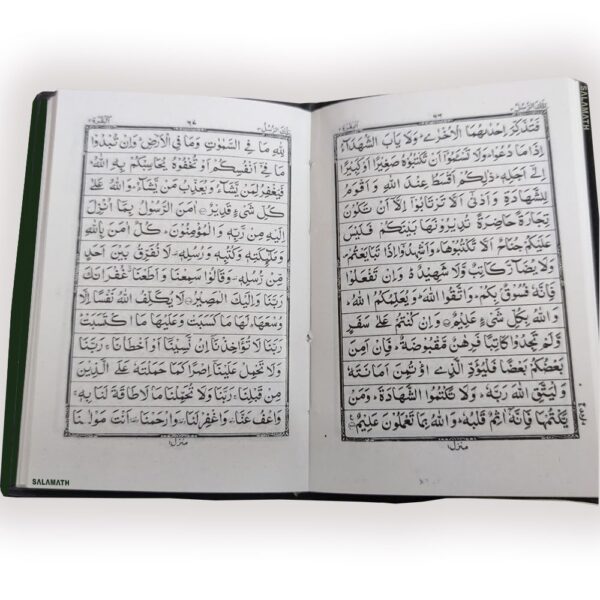 تلك الرسل ٣
٦٦
البقرة ٢
فَتُذَكِّرَ اِحْدٰىهُمَا الْاُخْرٰى ؕ وَلَا يَاْبَ الشُّهَدَآءُ
اِذَا مَا دُعُوْا ؕ وَلَا تَسْـَٔمُوْۤا اَنْ تَكْتُبُوْهُ صَغِيْرًا اَوْ كَبِيْرًا
اِلٰٓى اَجَلِهٖ ؕ ذٰلِكُمْ اَقْسَطُ عِنْدَ اللّٰهِ وَاَقْوَمُ
لِلشَّهَادَةِ وَاَدْنٰۤى اَلَّا تَرْتَابُوْۤا اِلَّاۤ اَنْ تَكُوْنَ
تِجَارَةً حَاضِرَةً تُدِيْرُوْنَهَا بَيْنَكُمْ فَلَيْسَ
عَلَيْكُمْ جُنَاحٌ اَلَّا تَكْتُبُوْهَا ؕ وَاَشْهِدُوْۤا اِذَا تَبَايَعْتُمْ ۪
وَلَا يُضَآرَّ كَاتِبٌ وَّلَا شَهِيْدٌ ؕ۬ وَاِنْ تَفْعَلُوْا
فَاِنَّهٗ فُسُوْقٌۢ بِكُمْ ؕ وَاتَّقُوا اللّٰهَ ؕ وَيُعَلِّمُكُمُ اللّٰهُ ؕ
وَاللّٰهُ بِكُلِّ شَىْءٍ عَلِيْمٌ ۝ وَاِنْ كُنْتُمْ عَلٰى سَفَرٍ
وَّلَمْ تَجِدُوْا كَاتِبًا فَرِهٰنٌ مَّقْبُوْضَةٌ ؕ فَاِنْ اَمِنَ
بَعْضُكُمْ بَعْضًا فَلْيُؤَدِّ الَّذِى اؤْتُمِنَ اَمَانَتَهٗ
وَلْيَتَّقِ اللّٰهَ رَبَّهٗ ؕ وَلَا تَكْتُمُوا الشَّهَادَةَ ؕ وَمَنْ
يَّكْتُمْهَا فَاِنَّهٗۤ اٰثِمٌ قَلْبُهٗ ؕ وَاللّٰهُ بِمَا تَعْمَلُوْنَ عَلِيْمٌ ۝
منزل ١
SALAMATH
تلك الرسل ٣
٦٧
البقرة ٢
لِلّٰهِ مَا فِى السَّمٰوٰتِ وَمَا فِى الْاَرْضِ ؕ وَاِنْ تُبْدُوْا
مَا فِىْۤ اَنْفُسِكُمْ اَوْ تُخْفُوْهُ يُحَاسِبْكُمْ بِهِ اللّٰهُ ؕ
فَيَغْفِرُ لِمَنْ يَّشَآءُ وَيُعَذِّبُ مَنْ يَّشَآءُ ؕ وَاللّٰهُ عَلٰى
كُلِّ شَىْءٍ قَدِيْرٌ ۝ اٰمَنَ الرَّسُوْلُ بِمَاۤ اُنْزِلَ
اِلَيْهِ مِنْ رَّبِّهٖ وَالْمُؤْمِنُوْنَ ؕ كُلٌّ اٰمَنَ بِاللّٰهِ
وَمَلٰٓئِكَتِهٖ وَكُتُبِهٖ وَرُسُلِهٖ ۫ لَا نُفَرِّقُ بَيْنَ اَحَدٍ
مِّنْ رُّسُلِهٖ ۫ وَقَالُوْا سَمِعْنَا وَاَطَعْنَا ٘ غُفْرَانَكَ
رَبَّنَا وَاِلَيْكَ الْمَصِيْرُ ۝ لَا يُكَلِّفُ اللّٰهُ نَفْسًا اِلَّا
وُسْعَهَا ؕ لَهَا مَا كَسَبَتْ وَعَلَيْهَا مَا اكْتَسَبَتْ ؕ
رَبَّنَا لَا تُؤَاخِذْنَاۤ اِنْ نَّسِيْنَاۤ اَوْ اَخْطَاْنَا ۚ رَبَّنَا
وَلَا تَحْمِلْ عَلَيْنَاۤ اِصْرًا كَمَا حَمَلْتَهٗ عَلَى الَّذِيْنَ
مِنْ قَبْلِنَا ۚ رَبَّنَا وَلَا تُحَمِّلْنَا مَا لَا طَاقَةَ لَنَا بِهٖ ۚ
وَاعْفُ عَنَّا ٝ وَاغْفِرْلَنَا ٝ وَارْحَمْنَا ٝ اَنْتَ مَوْلٰىنَا
منزل ١
SALAMATH